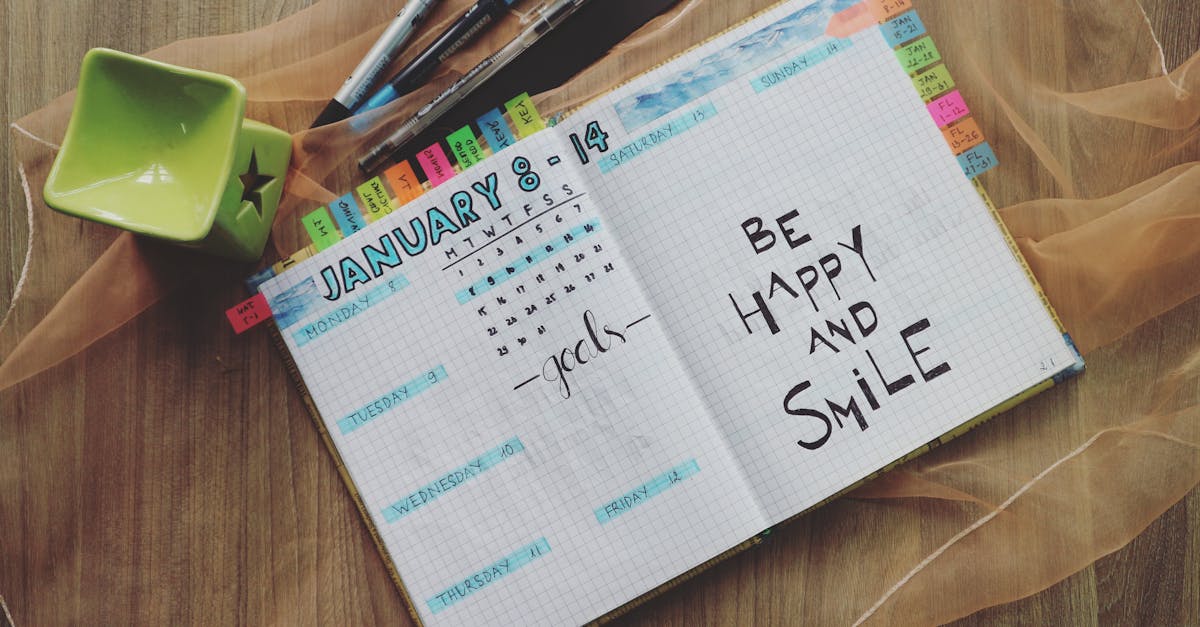 JANUARY 8-14
M T W T F S S
1 2 3 4 5 6 7
8 9 10 11 12 13 14
15 16 17 18 19 20 21
22 23 24 25 26 27 28
29 30 31
MONDAY 8
TUESDAY 9
WEDNESDAY 10
THURSDAY 11
-goals-
FRIDAY 12
SATURDAY 13
SUNDAY 14
BE
HAPPY
AND
SMiLE
KEY
YEAR
MOOD
8-14
JAN
15-21
JAN
22-28
JAN
29-31
FL
1-12
FL
13-26
FL
27-31